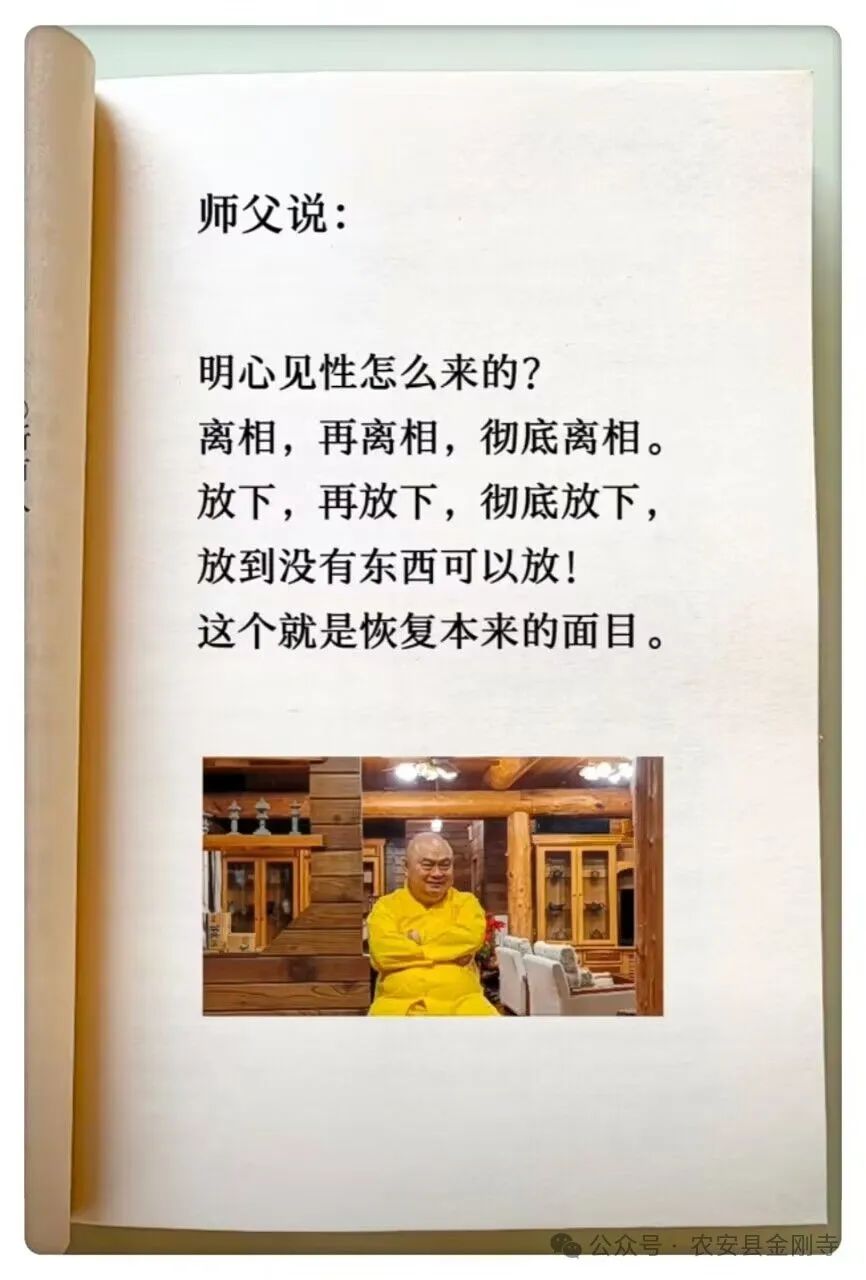 师父说：
明心见性怎么来的？
离相，再离相，彻底离相。
放下，再放下，彻底放下，
放到没有东西可以放！
这个就是恢复本来的面目。
公众号 · 农安县金刚寺